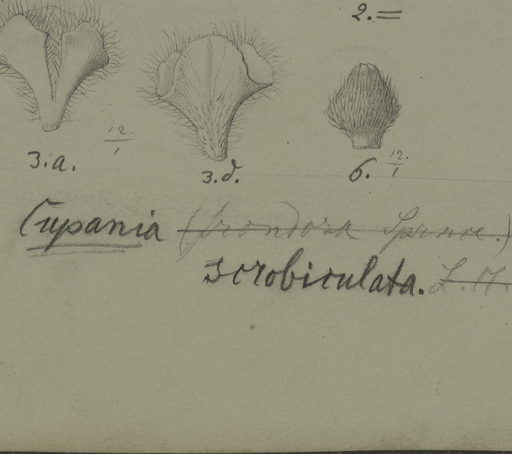 2. =
12/1
3.a.
3.d.
6. 12./1
Cupania (frondosa Spruce.)
scrobiculata. L.